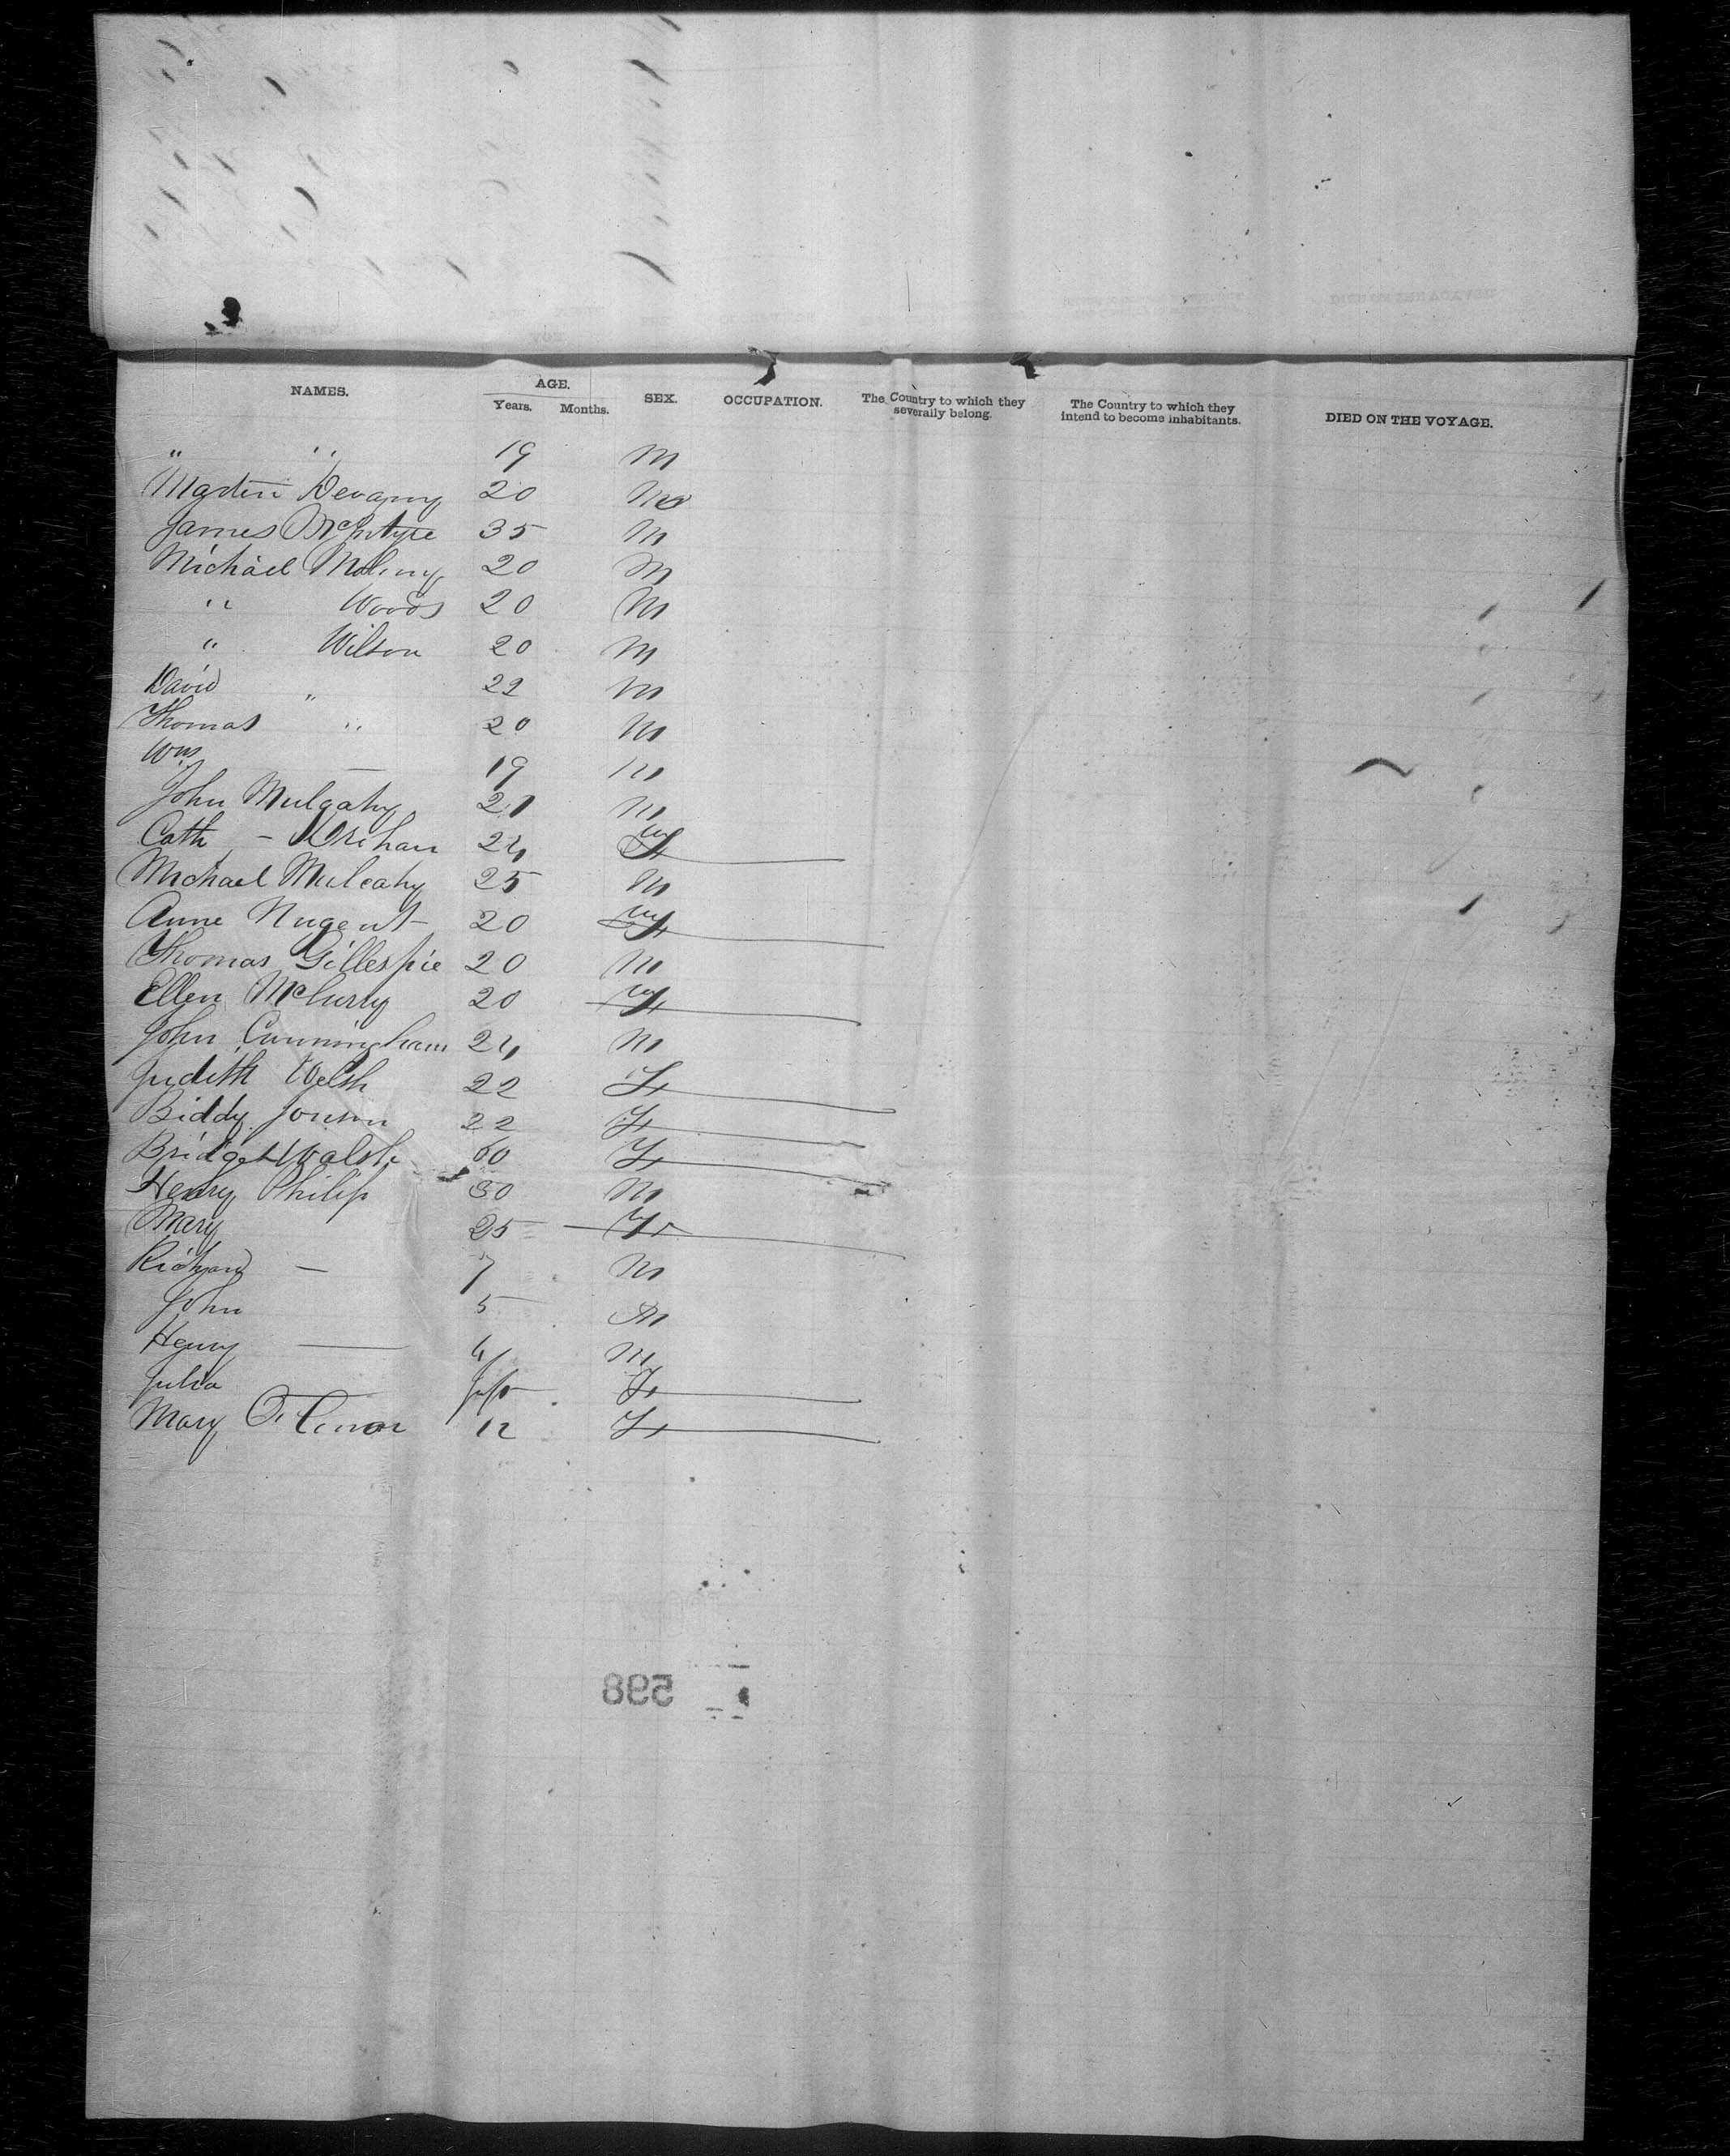 NAMES. AGE. Years. Months. SEX. OCCUPATION. The Country to which they severally belong. The Country to which they intend to become inhabitants. DIED ON THE VOYAGE.
" " 19 M
Martin Devany 20 M
James McIntyre 35 M
Michael 20 M
" Woods 20 M
" Wilson 20 M
David " 22 M
Thomas " 20 M
Wm — 19 M
John Mulcahy 21 M
Cath 24 F
Michael Mulcahy 25 M
Anne Nugent 20 F
Thomas Gillespie 20 M
Ellen 20 F
John Cunningham 24 M
Judith Welsh 22 F
Biddy 22 F
Bridget Walsh 60 F
Henry Philip 30 M
Mary 25 F
Richard — 7 M
John 5 M
Henry — 4 M
Julia — F
Mary 12 F
598